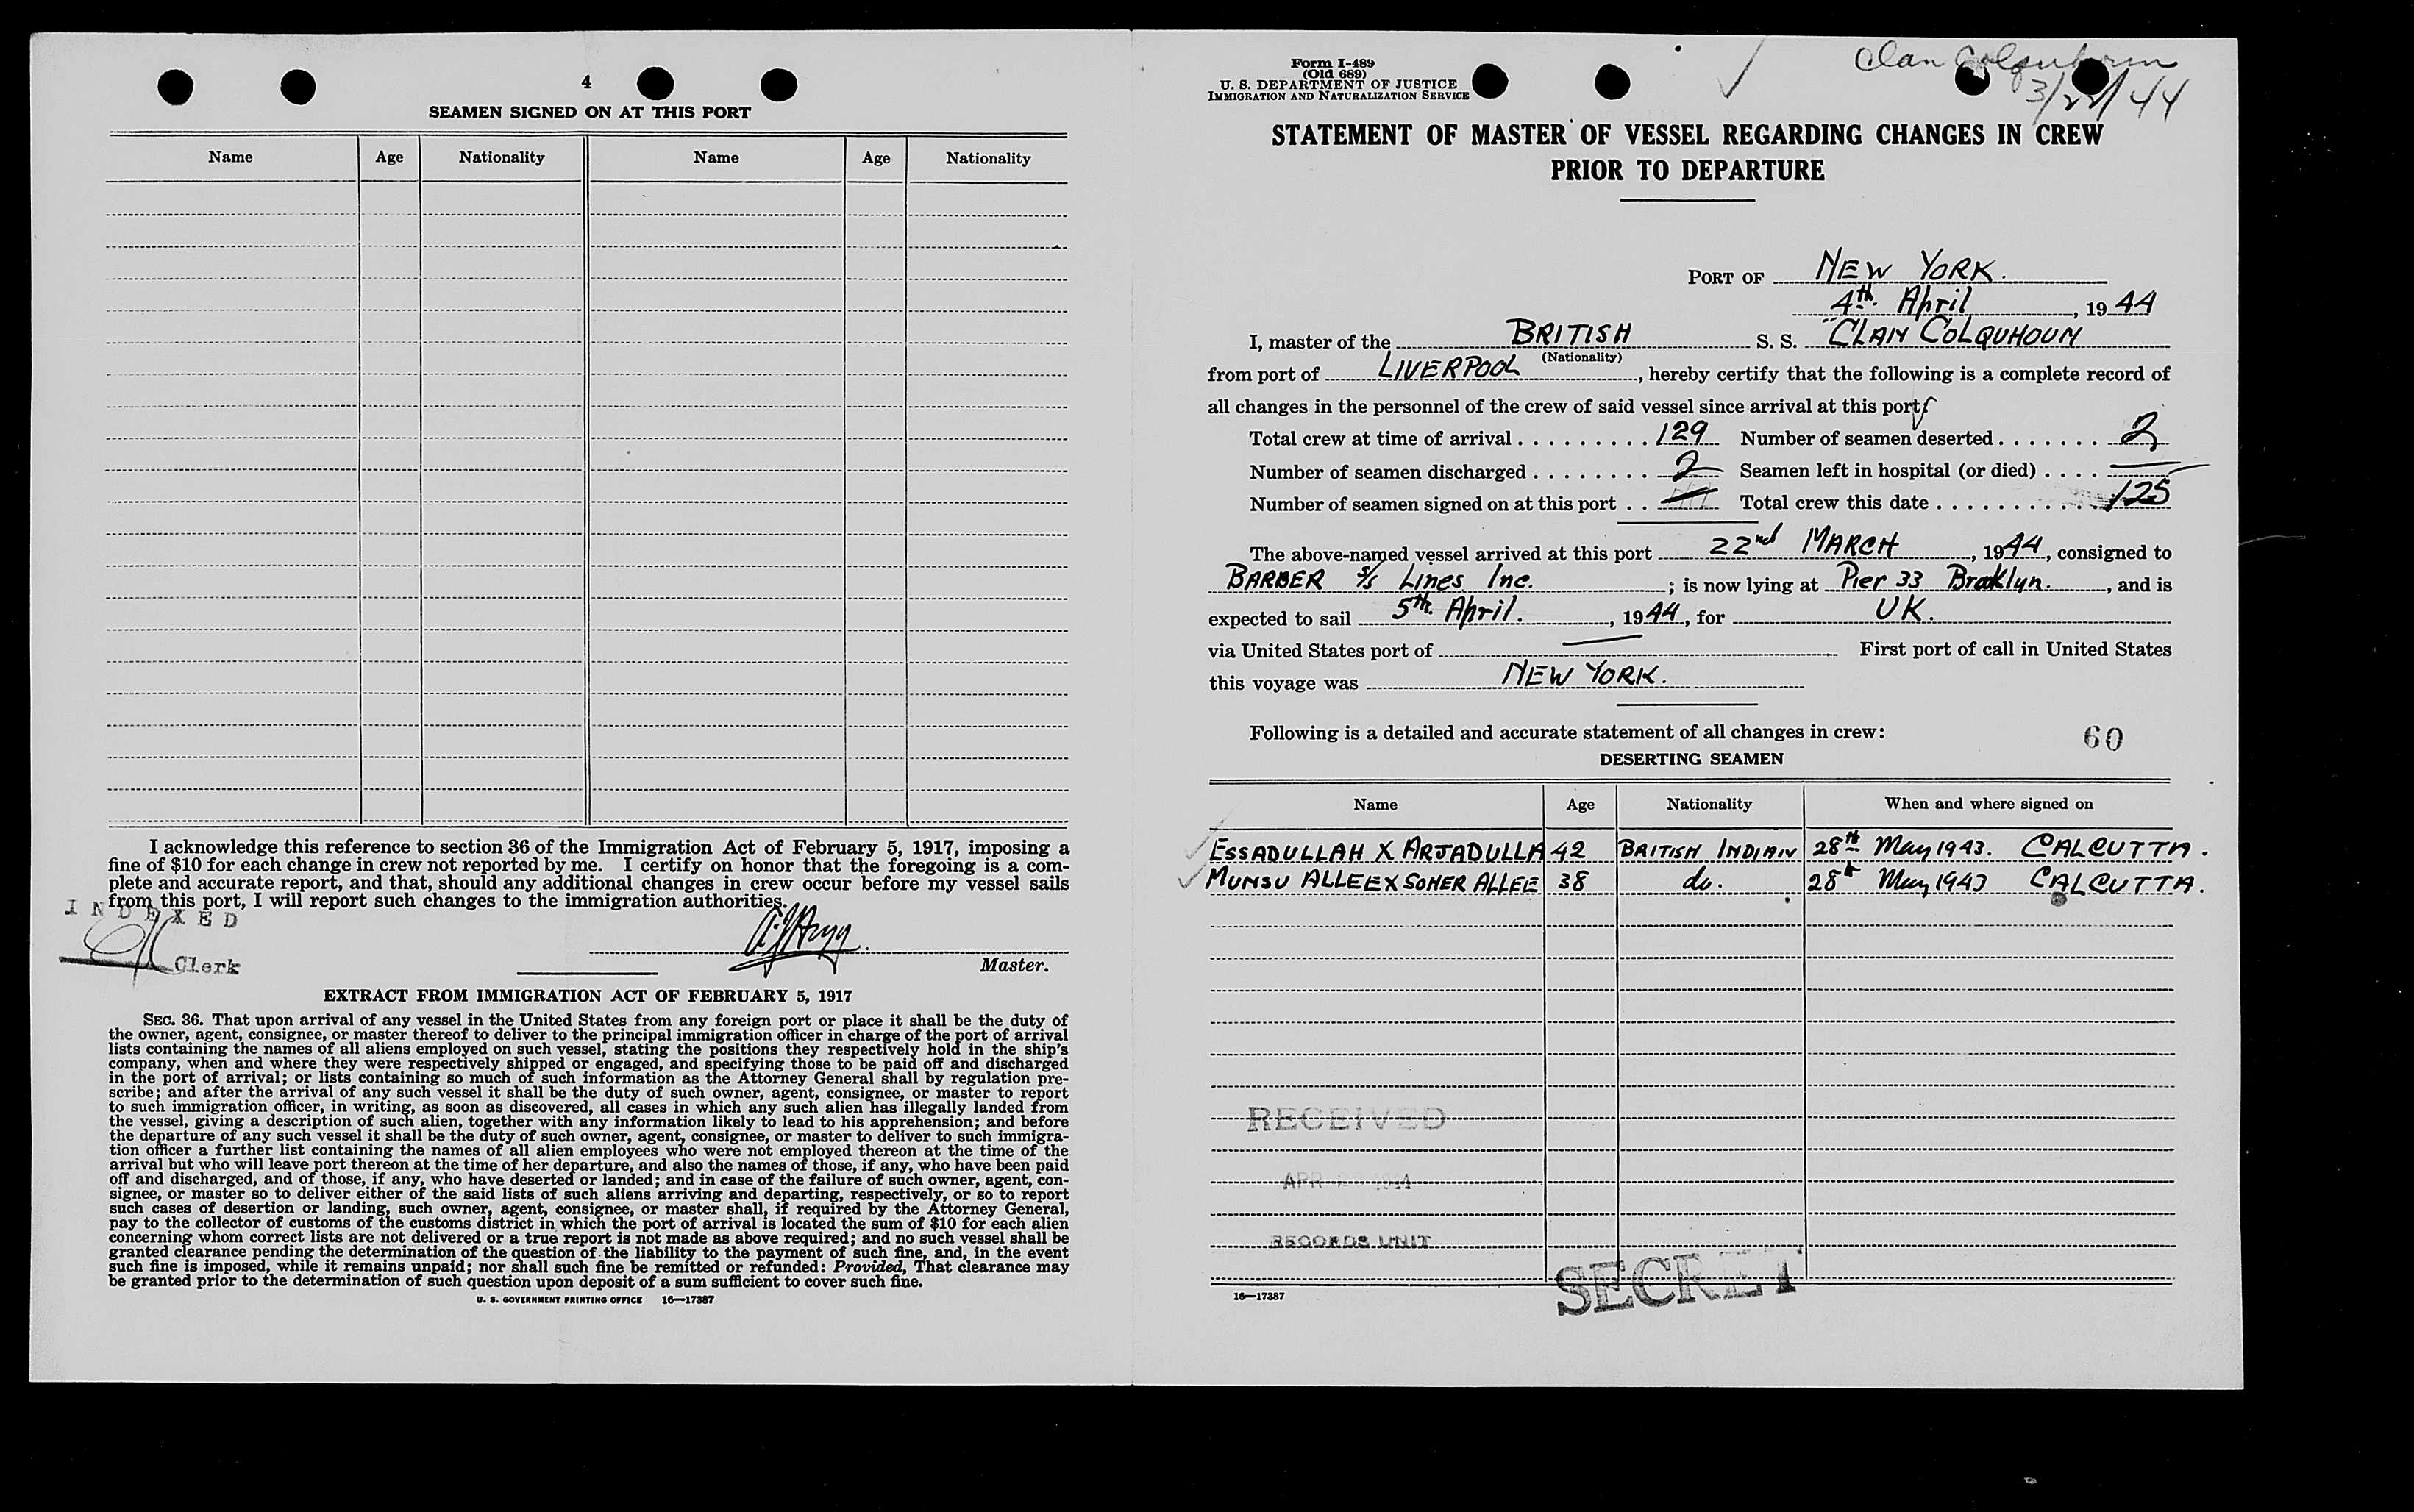 4
SEAMEN SIGNED ON AT THIS PORT
Name Age Nationality Name Age Nationality
I acknowledge this reference to section 36 of the Immigration Act of February 5, 1917, imposing a
fine of $10 for each change in crew not reported by me. I certify on honor that the foregoing is a com-
plete and accurate report, and that, should any additional changes in crew occur before my vessel sails
from this port, I will report such changes to the immigration authorities.
INDEXED
Clerk
Master.
EXTRACT FROM IMMIGRATION ACT OF FEBRUARY 5, 1917
SEC. 36. That upon arrival of any vessel in the United States from any foreign port or place it shall be the duty of
the owner, agent, consignee, or master thereof to deliver to the principal immigration officer in charge of the port of arrival
lists containing the names of all aliens employed on such vessel, stating the positions they respectively hold in the ship's
company, when and where they were respectively shipped or engaged, and specifying those to be paid off and discharged
in the port of arrival; or lists containing so much of such information as the Attorney General shall by regulation pre-
scribe; and after the arrival of any such vessel it shall be the duty of such owner, agent, consignee, or master to report
to such immigration officer, in writing, as soon as discovered, all cases in which any such alien has illegally landed from
the vessel, giving a description of such alien, together with any information likely to lead to his apprehension; and before
the departure of any such vessel it shall be the duty of such owner, agent, consignee, or master to deliver to such immigra-
tion officer a further list containing the names of all alien employees who were not employed thereon at the time of the
arrival but who will leave port thereon at the time of her departure, and also the names of those, if any, who have been paid
off and discharged, and of those, if any, who have deserted or landed; and in case of the failure of such owner, agent, con-
signee, or master so to deliver either of the said lists of such aliens arriving and departing, respectively, or so to report
such cases of desertion or landing, such owner, agent, consignee, or master shall, if required by the Attorney General,
pay to the collector of customs of the customs district in which the port of arrival is located the sum of $10 for each alien
concerning whom correct lists are not delivered or a true report is not made as above required; and no such vessel shall be
granted clearance pending the determination of the question of the liability to the payment of such fine, and, in the event
such fine is imposed, while it remains unpaid; nor shall such fine be remitted or refunded: Provided, That clearance may
be granted prior to the determination of such question upon deposit of a sum sufficient to cover such fine.
U. S. GOVERNMENT PRINTING OFFICE 16—17387
Form I-489
(Old 689)
U. S. DEPARTMENT OF JUSTICE
IMMIGRATION AND NATURALIZATION SERVICE
Clan Colquhoun
3/22/44
STATEMENT OF MASTER OF VESSEL REGARDING CHANGES IN CREW
PRIOR TO DEPARTURE
PORT OF NEW YORK.
4th. April, 1944
I, master of the BRITISH S. S. "CLAN COLQUHOUN
(Nationality)
from port of LIVERPOOL, hereby certify that the following is a complete record of
all changes in the personnel of the crew of said vessel since arrival at this port:
Total crew at time of arrival 129 Number of seamen deserted 2
Number of seamen discharged 2 Seamen left in hospital (or died) —
Number of seamen signed on at this port — Total crew this date 125
The above-named vessel arrived at this port 22nd MARCH, 1944, consigned to
BARBER S/S Lines Inc.; is now lying at Pier 33 Brooklyn., and is
expected to sail 5th. April., 1944, for UK.
via United States port of — First port of call in United States
this voyage was NEW YORK.
Following is a detailed and accurate statement of all changes in crew:
60
DESERTING SEAMEN
Name Age Nationality When and where signed on
ESSADULLAH X ARJADULLA 42 BRITISH INDIAN 28th May 1943. CALCUTTA.
MUNSU ALLEE X SOMER ALLEE 38 do. 28th May 1943 CALCUTTA.
RECEIVED
APR 1944
RECORDS UNIT
SECRET
16—17387